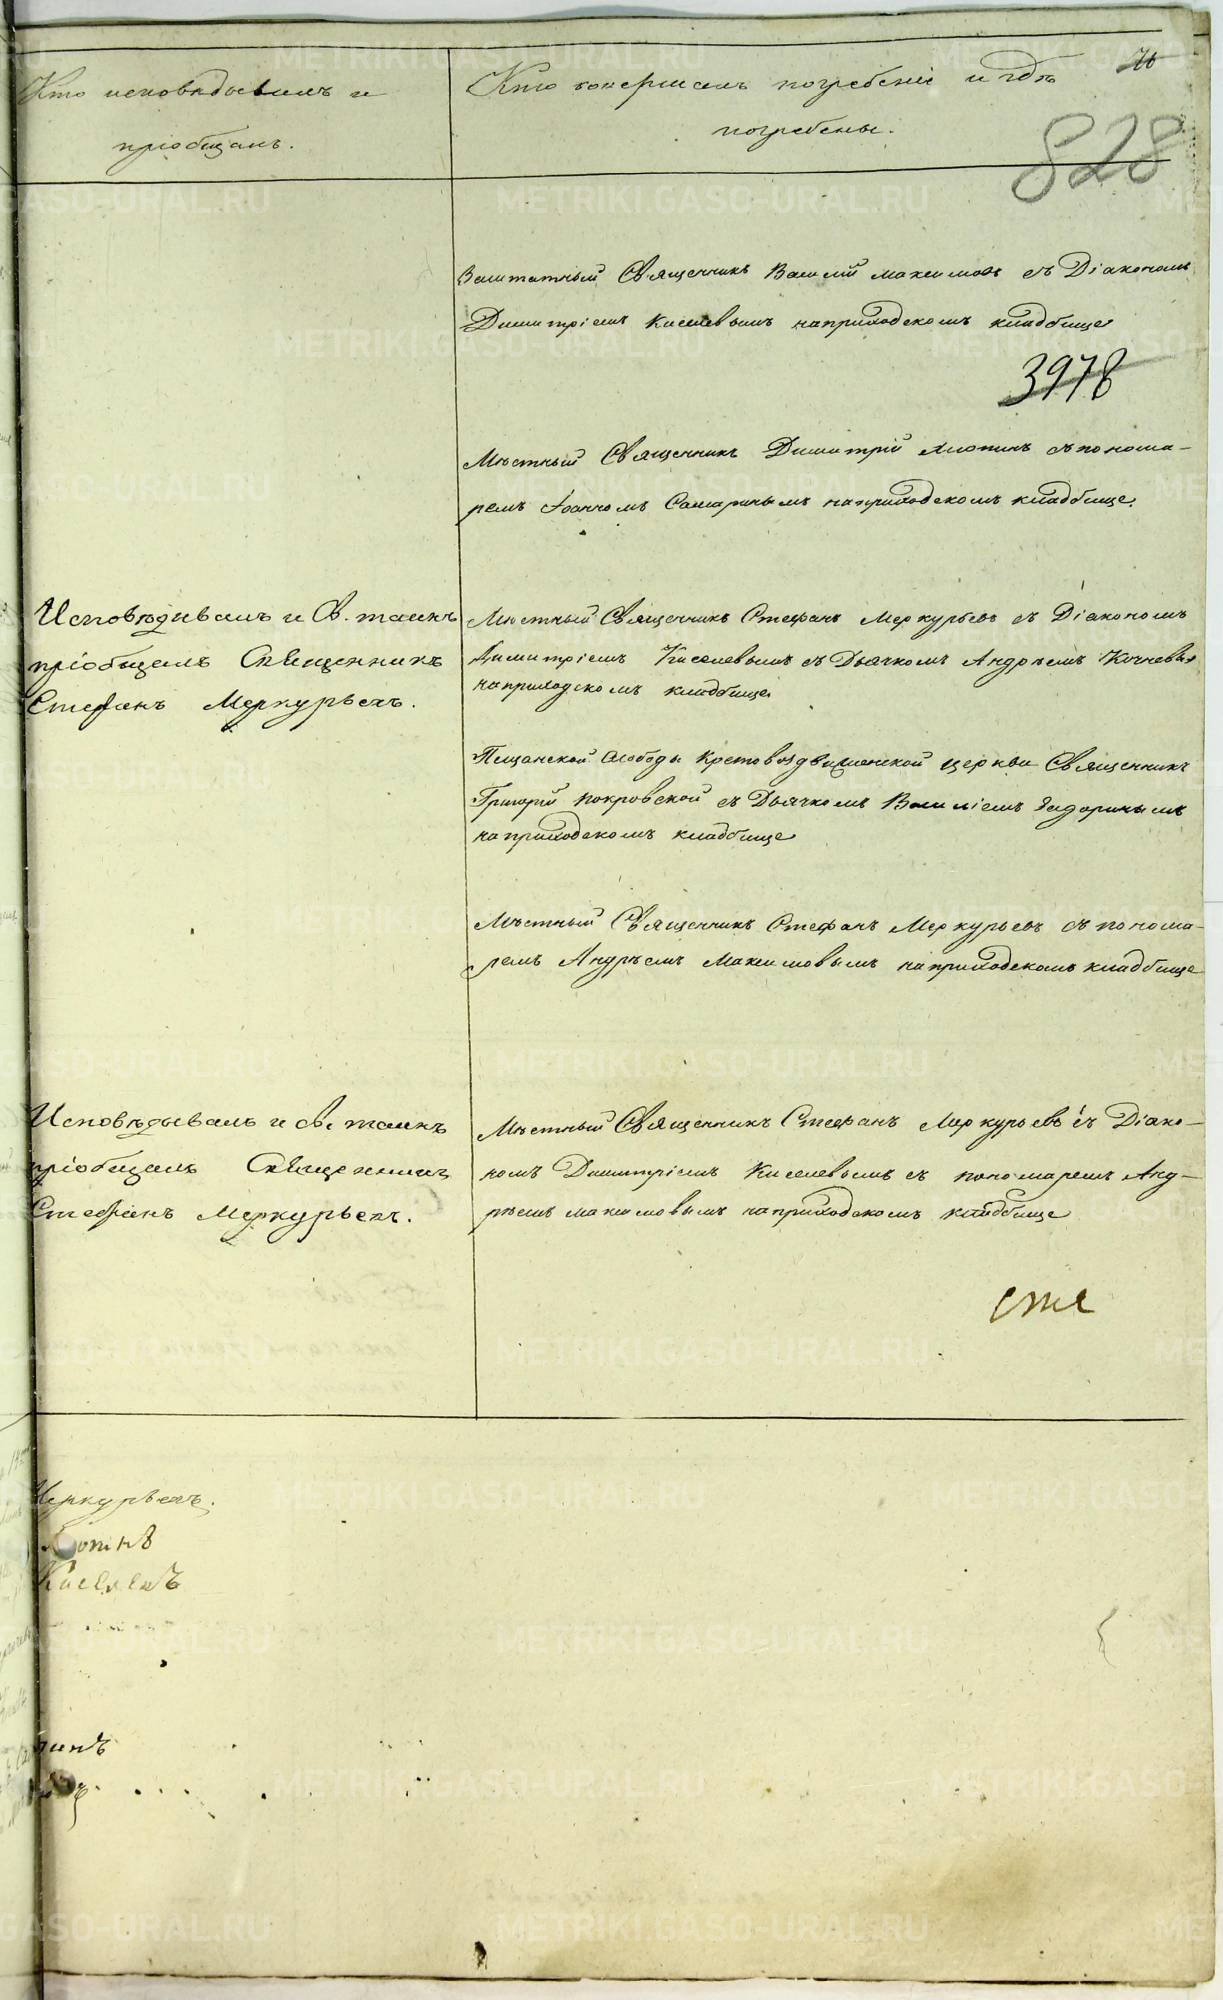 Кто исповѣдывалъ и
пріобщалъ.
Кто совершалъ погребеніе и гдѣ
погребены.
828
Заштатный Священникъ Василій Максимовъ съ Діакономъ
Димитріемъ Киселевымъ на приходскомъ кладбище
3978
Мѣстный Священникъ Димитрій Хлопинъ съ понома-
ремъ Іоанномъ Самаринымъ на приходскомъ кладбище.
Исповѣдывалъ и Св. таинъ
пріобщалъ Священникъ
Стефанъ Меркурьевъ.
Мѣстный Священникъ Стефанъ Меркурьевъ съ Діакономъ
Димитріемъ Киселевымъ съ Дьячкомъ Андреемъ
на приходскомъ кладбище
Пещанской слободы Крестовоздвиженской церкви Священникъ
Григорій Покровской съ Дьячкомъ Василіемъ
на приходскомъ кладбище
Мѣстный Священникъ Стефанъ Меркурьевъ съ понома-
ремъ Андреемъ Максимовымъ на приходскомъ кладбище
Исповѣдывалъ и св. таинъ
пріобщалъ Священникъ
Стефанъ Меркурьевъ.
Мѣстный Священникъ Стефанъ Меркурьевъ съ Діако-
номъ Димитріемъ Киселевымъ съ пономаремъ Анд-
реемъ Максимовымъ на приходскомъ кладбище
Меркурьевъ.
Киселевъ
METRIKI.GASO-URAL.RU